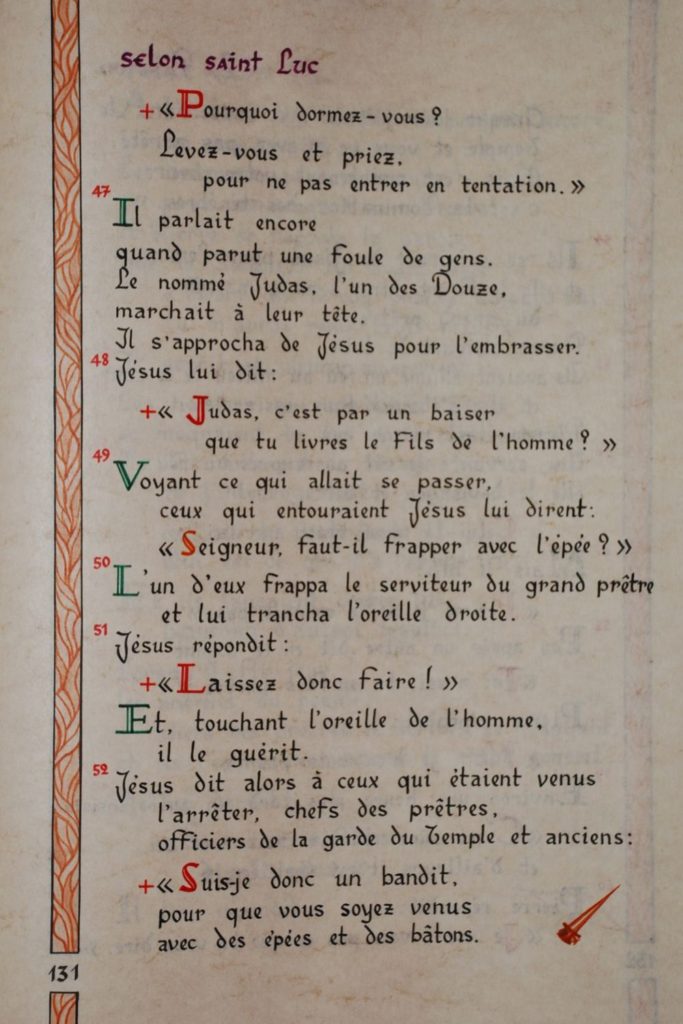 Selon saint Luc
+« Pourquoi dormez-vous ?
Levez-vous et priez,
pour ne pas entrer en tentation. »
47
Il parlait encore
quand parut une foule de gens.
Le nommé Judas, l'un des Douze,
marchait à leur tête.
Il s'approcha de Jésus pour l'embrasser.
48
Jésus lui dit :
+« Judas, c'est par un baiser
que tu livres le Fils de l'homme ? »
49
Voyant ce qui allait se passer,
ceux qui entouraient Jésus lui dirent :
« Seigneur, faut-il frapper avec l'épée ? »
50
L'un d'eux frappa le serviteur du grand prêtre
et lui trancha l'oreille droite.
51
Jésus répondit :
+« Laissez donc faire ! »
Et, touchant l'oreille de l'homme,
il le guérit.
52
Jésus dit alors à ceux qui étaient venus
l'arrêter, chefs des prêtres,
officiers de la garde du Temple et anciens :
+« Suis-je donc un bandit,
pour que vous soyez venus
avec des épées et des bâtons.
131